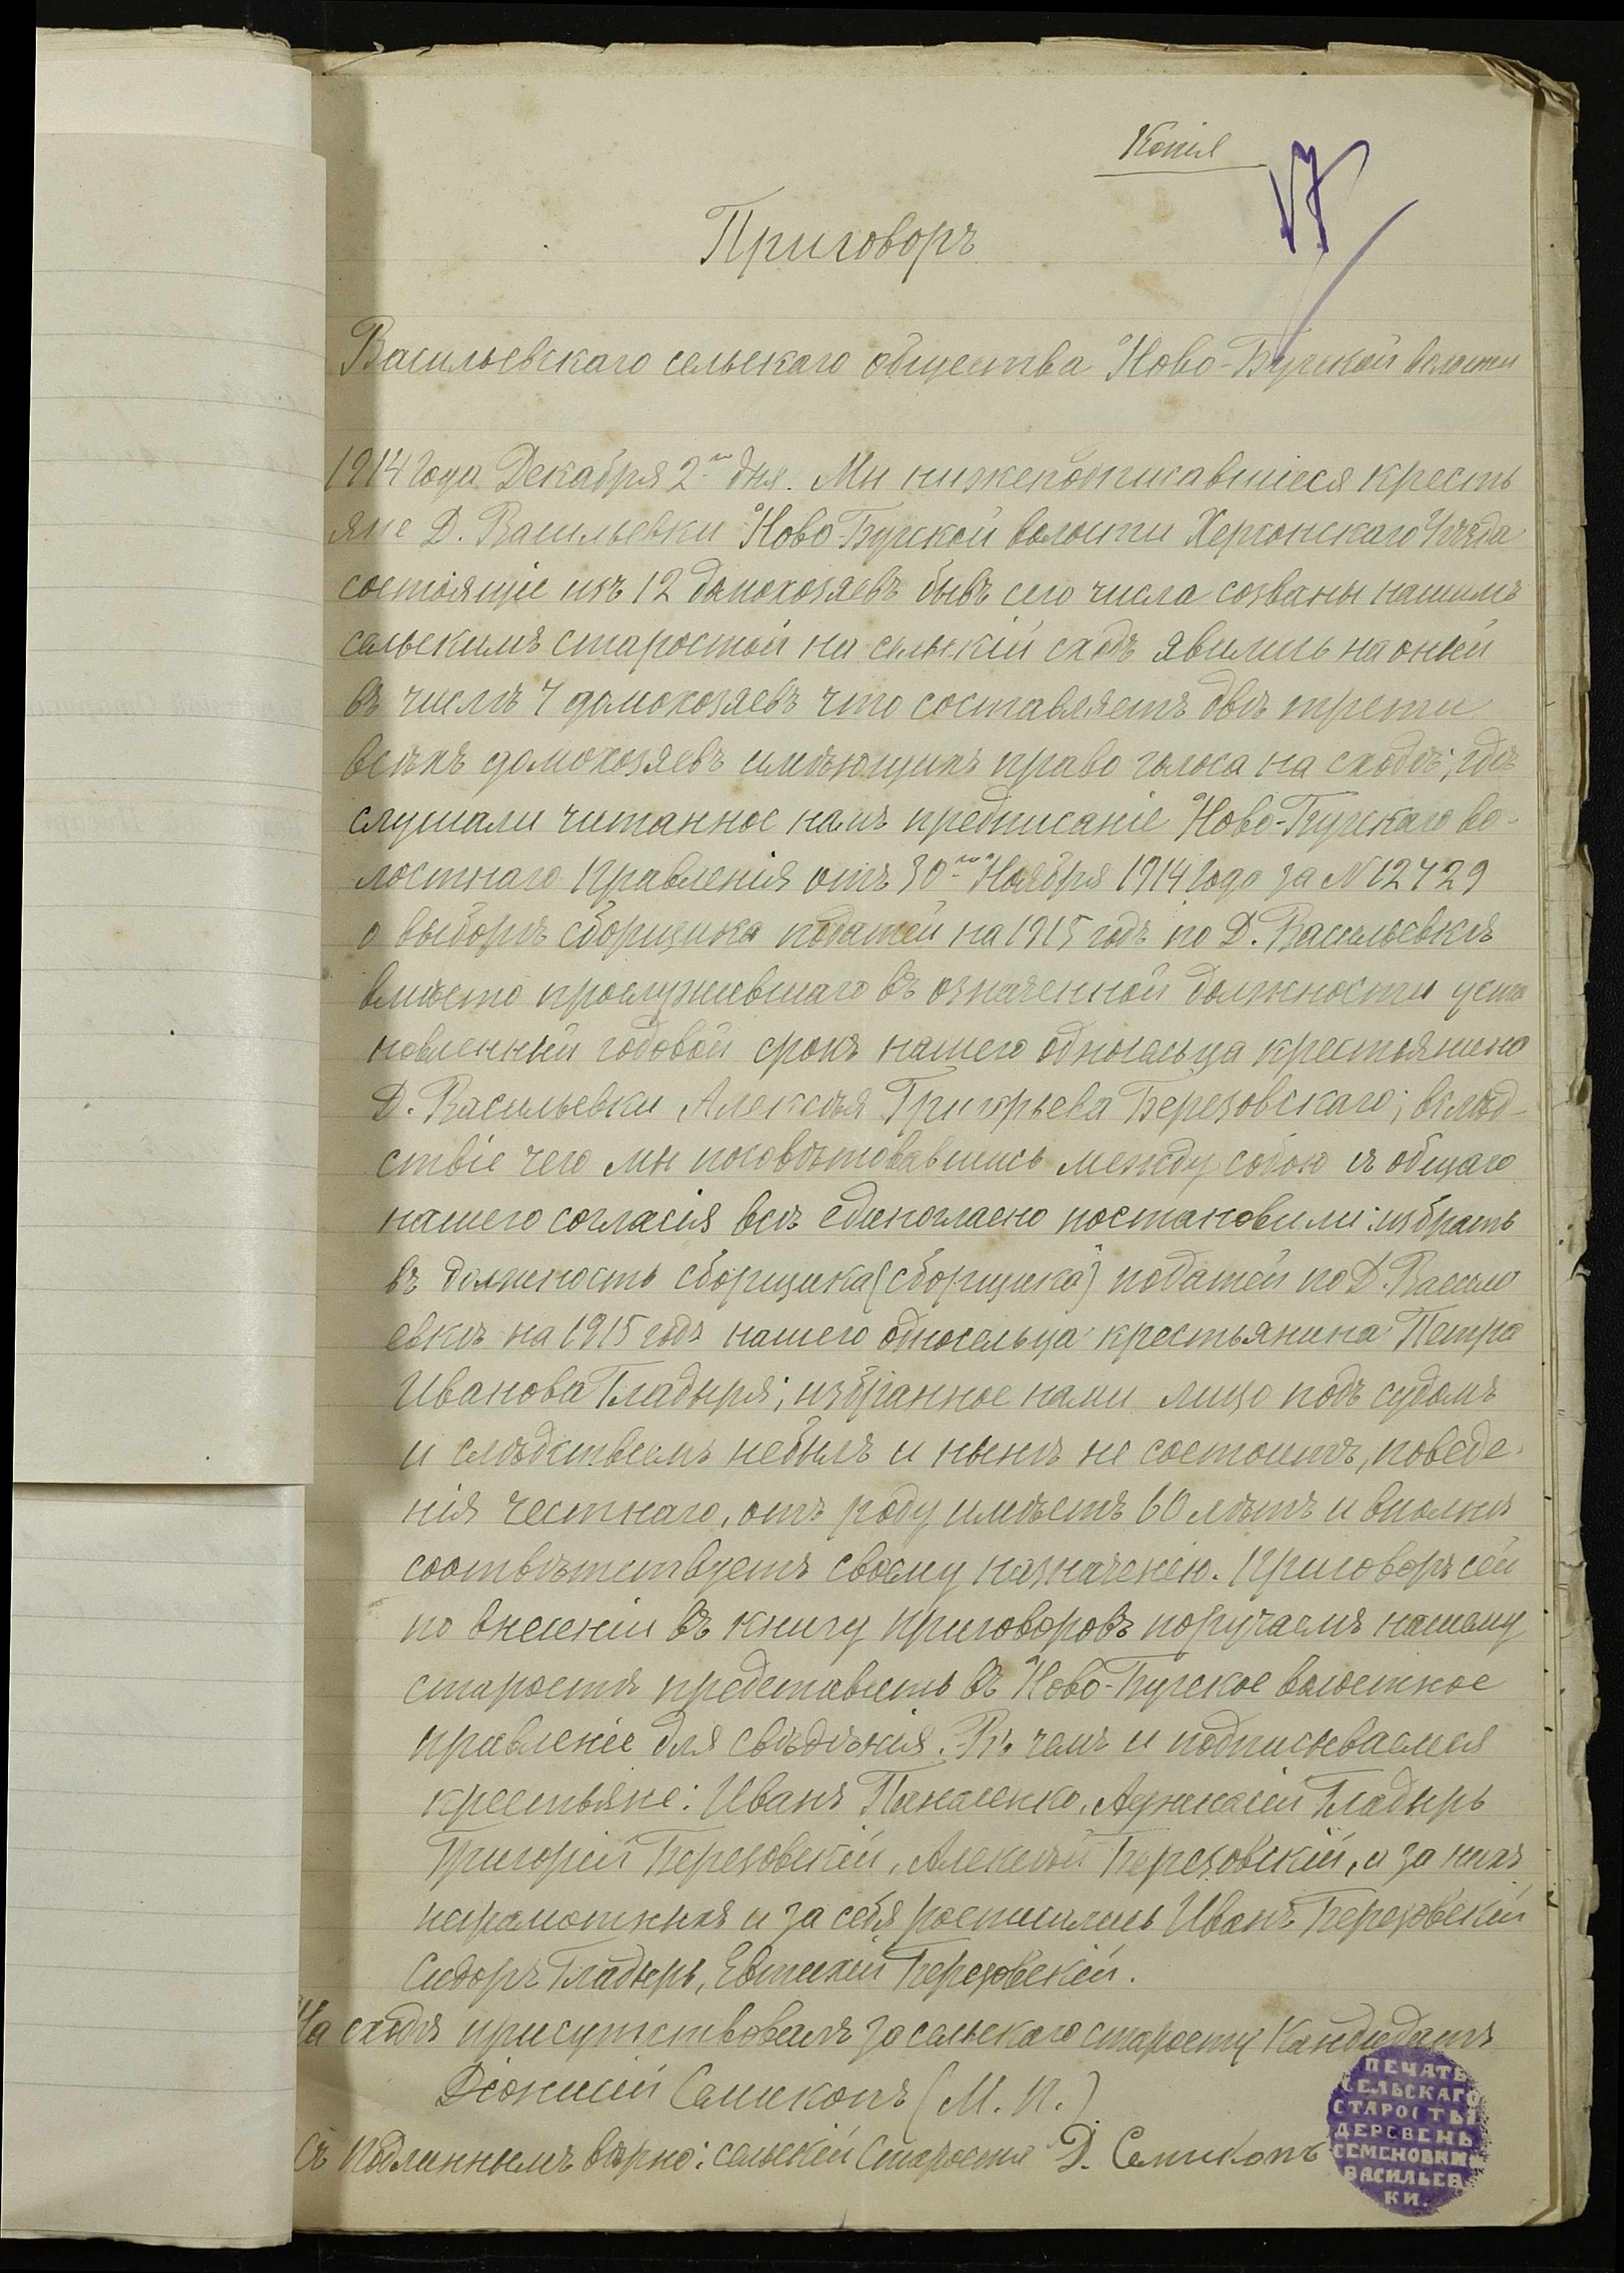 Копія
17
Приговоръ
Васильевскаго сельскаго общества Ново-Бугской волости
1914 года Декабря 2го дня. Мы нижеподписавшіеся кресть
яне Д. Васильевки Ново-Бугской волости Херсонскаго Уѣзда
состоящіе изъ 12 домохозяевъ бывъ сего числа созваны нашимъ
сельскимъ старостой на сельскій сходъ явились на оный
въ числѣ домохозяевъ что составляетъ двѣ трети
всѣхъ домохозяевъ имѣющихъ право голоса на сходѣ, гдѣ
слушали читанное намъ предписаніе Ново-Бугскаго во-
лостнаго Правленія отъ 30го Ноября 1914 года за № 12429
о выборѣ сборщика податей на 1915 годъ по Д. Васильевкѣ
вмѣсто прослужившаго въ означенной должности уста
новленный годовой срокъ нашего односельца крестьянина
Д. Васильевки Алексѣя Григорьева Березовскаго; вслѣд-
ствіе чего мы посовѣтовавшись между собою съ общаго
нашего согласія всѣ единогласно постановили: избрать
въ должность сборщика (сборщика) податей по Д. Василь
евкѣ на 1915 годъ нашего односельца крестьянина Петра
Иванова Гладыря; избранное нами лицо подъ судомъ
и слѣдствіемъ небылъ и нынѣ не состоитъ, поведе-
нія честнаго, отъ роду имѣетъ 60 лѣтъ и вполнѣ
соотвѣтствуетъ своему назначенію. Приговоръ сей
по внесеніи въ книгу приговоровъ поручаемъ нашему
старостѣ представить въ Ново-Бугское волостное
правленіе для свѣдѣнія. Въ чемъ и подписываемся
крестьяне: Иванъ Гладырь
Григорій Березовскій, Алексѣй Березовскій, а за нихъ
неграмотныхъ и за себя росписались Иванъ Березовскій
Сидоръ Гладырь, Евтихій Березовскій.
На сходѣ присутствовалъ за сельскаго старосту Кандидатъ
Діонисій Семикопъ (М. П.)
Съ подлиннымъ вѣрно: сельскій Староста Д. Семикопъ
ПЕЧАТЬ
СЕЛЬСКАГО
СТАРОСТЫ
ДЕРЕВЕНЬ
СЕМЕНОВКИ
ВАСИЛЬЕВ
КИ.